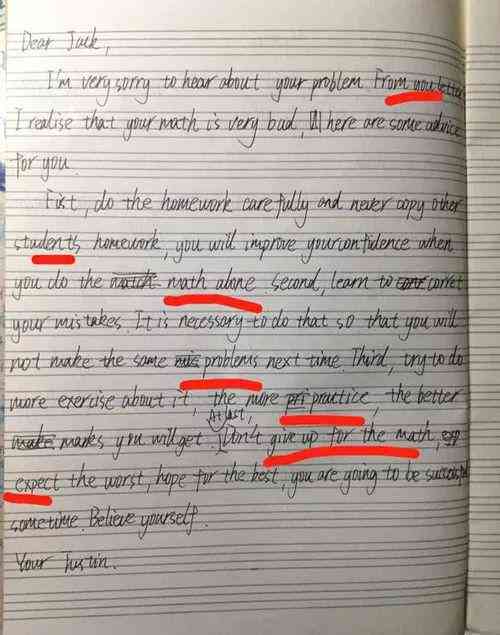 Dear Jack,
I'm very sorry to hear about your problem. From you letter
I realise that your math is very bad, here are some advice
for you.
First, do the homework carefully and never copy other
student's homework, you will improve your confidence when
you do the math alone. second, learn to corret
your mistakes. It is necessary to do that so that you will
not make the same problems next time. Third, try to do
more exercise about it, the more practice, the better
At last,
marks you will get. Don't give up for the math,
expect the worst, hope for the best, you are going to be successful
sometime. Believe yourself.
Your Justin.